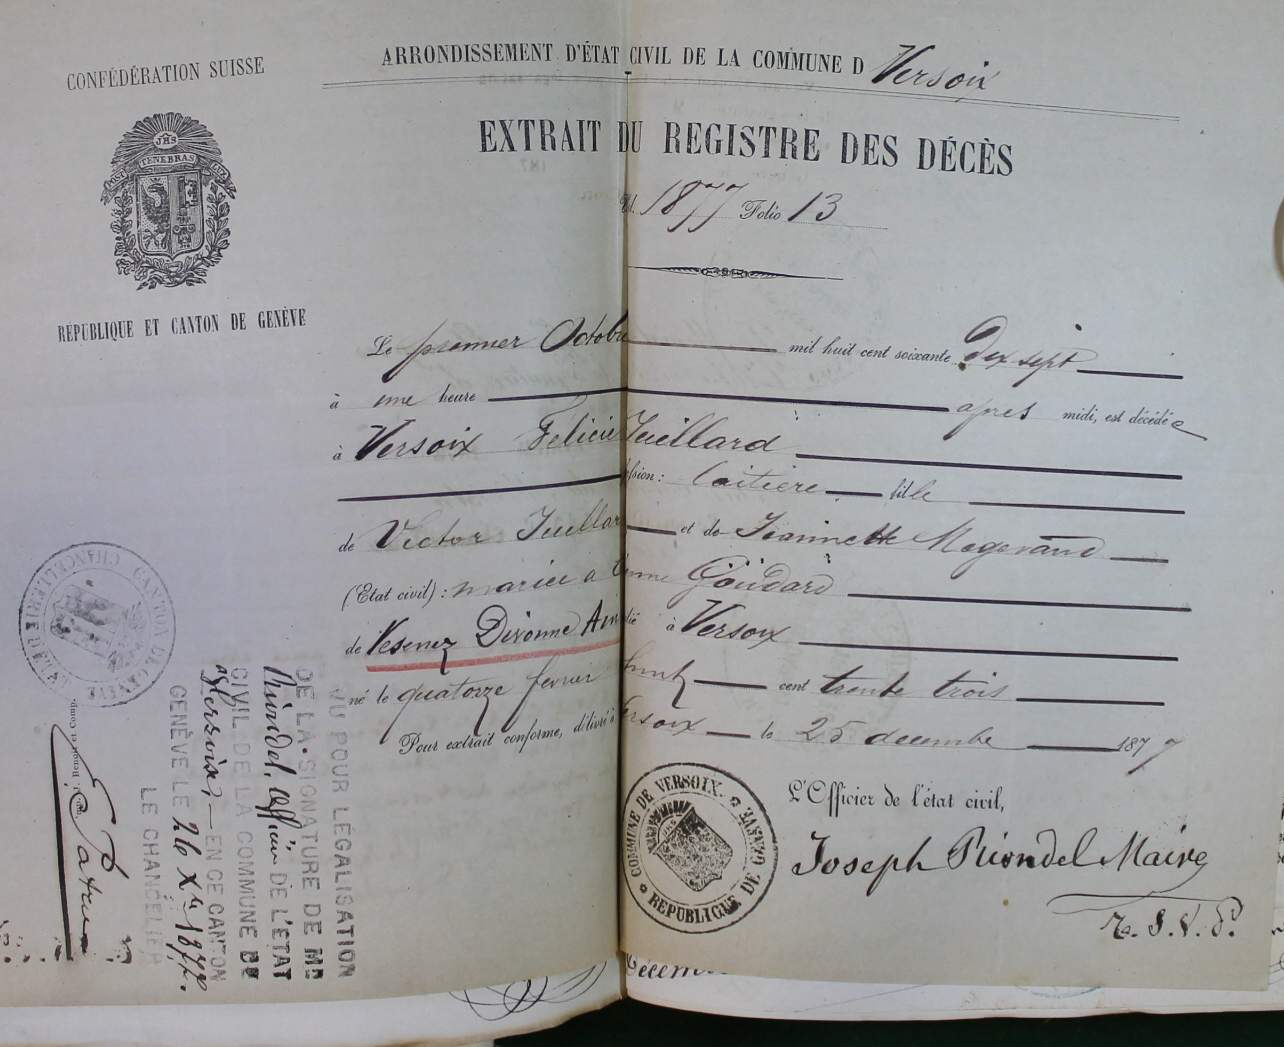 CONFÉDÉRATION SUISSE
ARRONDISSEMENT D'ÉTAT CIVIL DE LA COMMUNE D Versoix
JHS
TENEBRAS
RÉPUBLIQUE ET CANTON DE GENÈVE
EXTRAIT DU REGISTRE DES DÉCÈS
1877 Folio 13
Le premier Octobre mil huit cent soixante Dix sept
à une heure après midi, est décédée
à Versoix Felicie Juillard
fession: laitière fille
de Victor Juillar et de Jeannette Magerand
(Etat civil): mariée a Goudard
de Vesenez Divonne Ain lié à Versoix
né le quatorze fevrier cent trente trois
Pour extrait conforme, délivré à ersoix le 25 decembre 1877
L'Officier de l'état civil,
Joseph Riondel Maire
COMMUNE DE VERSOIX. RÉPUBLIQUE DE GENÈVE
CANTON DE GENÈVE CHANCELLERIE
VU POUR LÉGALISATION
DE LA SIGNATURE DE MR
Riondel, officier DE L'ÉTAT
CIVIL DE LA COMMUNE DE
Versoix, EN CE CANTON
GENÈVE LE 26 Xbre 1877.
LE CHANCELIER